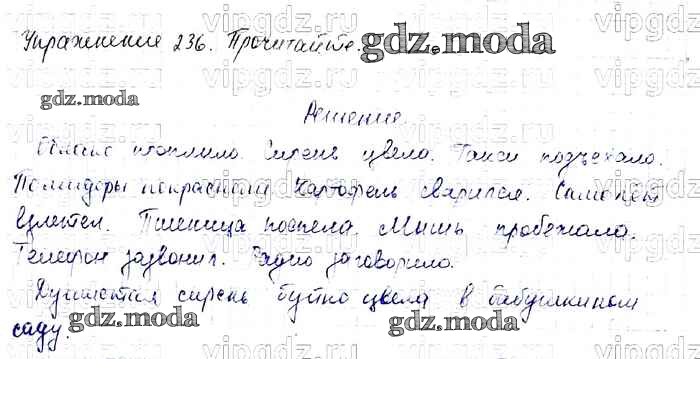 Упражнение 236. Прочитайте. gdz.moda
gdz.moda
Решение
Облако проплыло. Сирень цвела. Такси подъехало.
Помидоры покраснели. Картофель сварился. Самолет
взлетел. Пшеница поспела. Мышь пробежала.
Телефон зазвонил. Радио заговорило.
Душистая сирень буйно цвела в бабушкином
саду.
gdz.moda
gdz.moda
vipgdz.ru